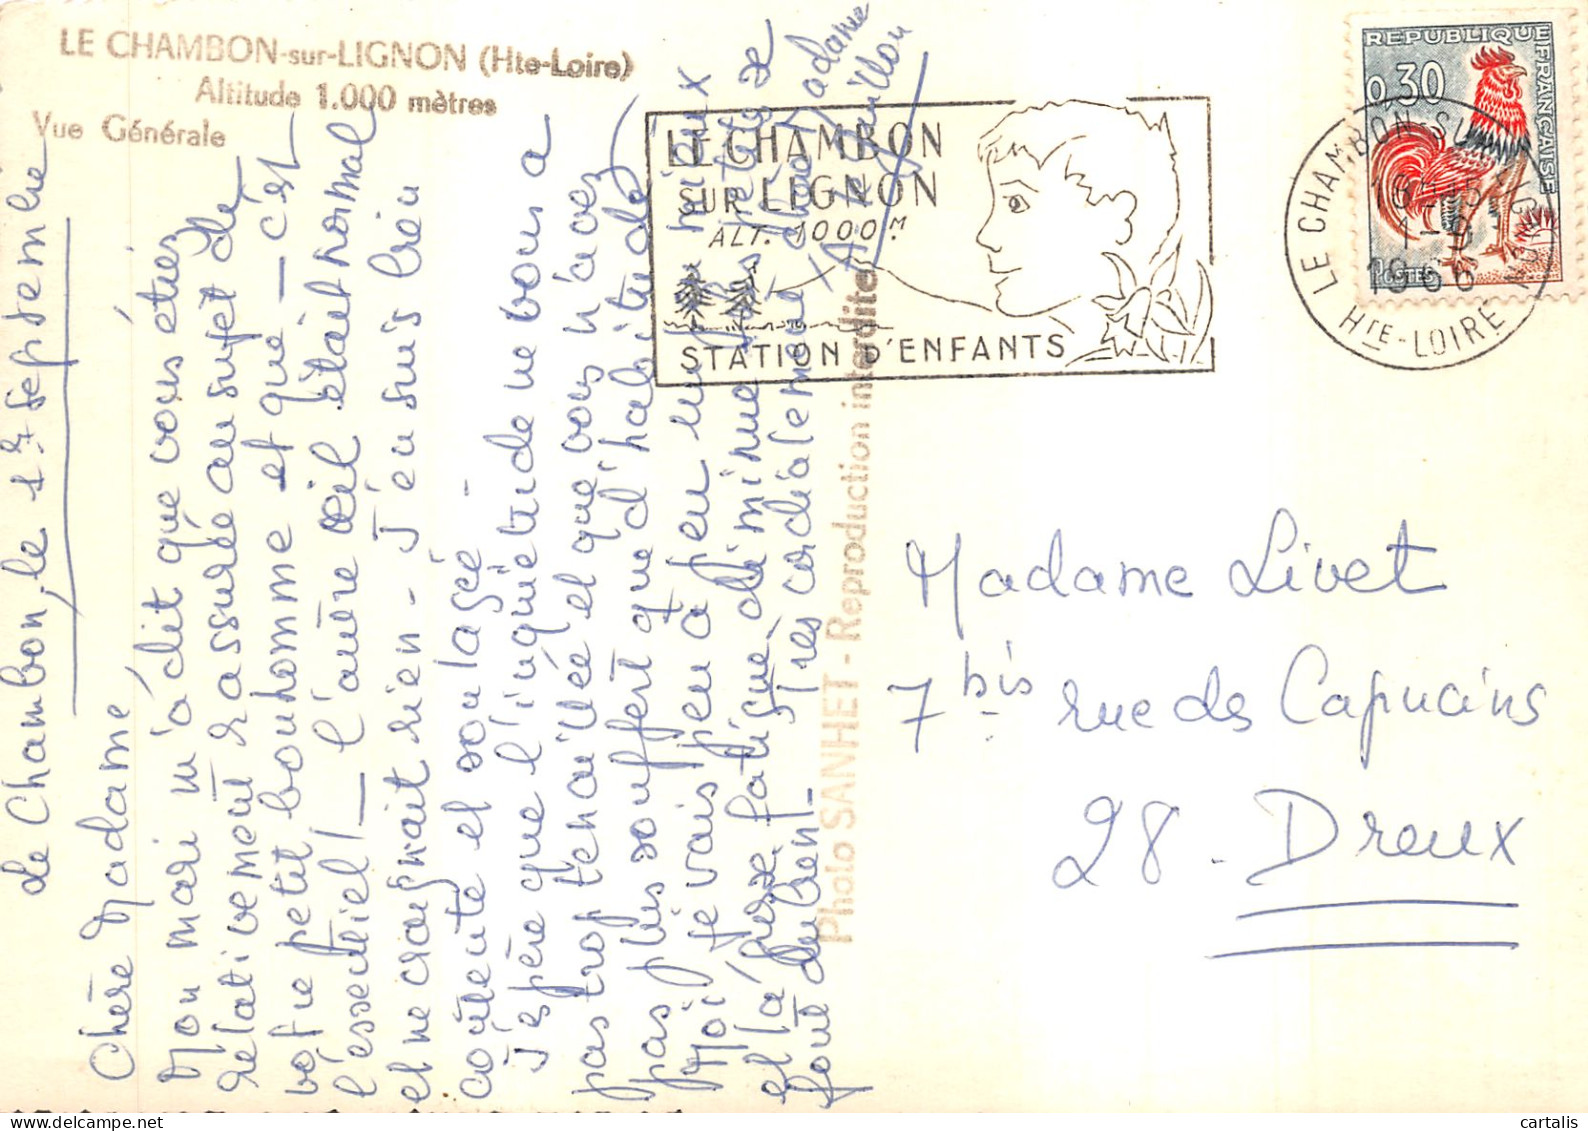 LE CHAMBON-sur-LIGNON (Hte-Loire)
Altitude 1.000 mètres
Vue Générale
Le Chambon, le 1er septembre
Chère Madame
Mon mari m'a dit que vous étiez
relativement rassurée au sujet de
votre petit bonhomme et que - c'est
l'essentiel ! - l'autre œil était normal
et ne craignait rien - J'en suis bien
contente et soulagée -
J'espère que l'inquiétude ne vous a
pas trop tenaillée et que vous n'avez
pas plus souffert que d'habitude.
Moi je vais peu à peu un mieux
et la fatigue diminue
font du bien - Très cordialement chère Madame
LE CHAMBON
SUR LIGNON
ALT. 1000 M.
STATION D'ENFANTS
REPUBLIQUE FRANÇAISE
0,30
POSTES
LE CHAMBON SUR LIGNON
1-9
1966
HTE-LOIRE
Photo SANHET - Reproduction interdite
Madame Livet
7 bis rue des Capucins
28 - Dreux
cartalis